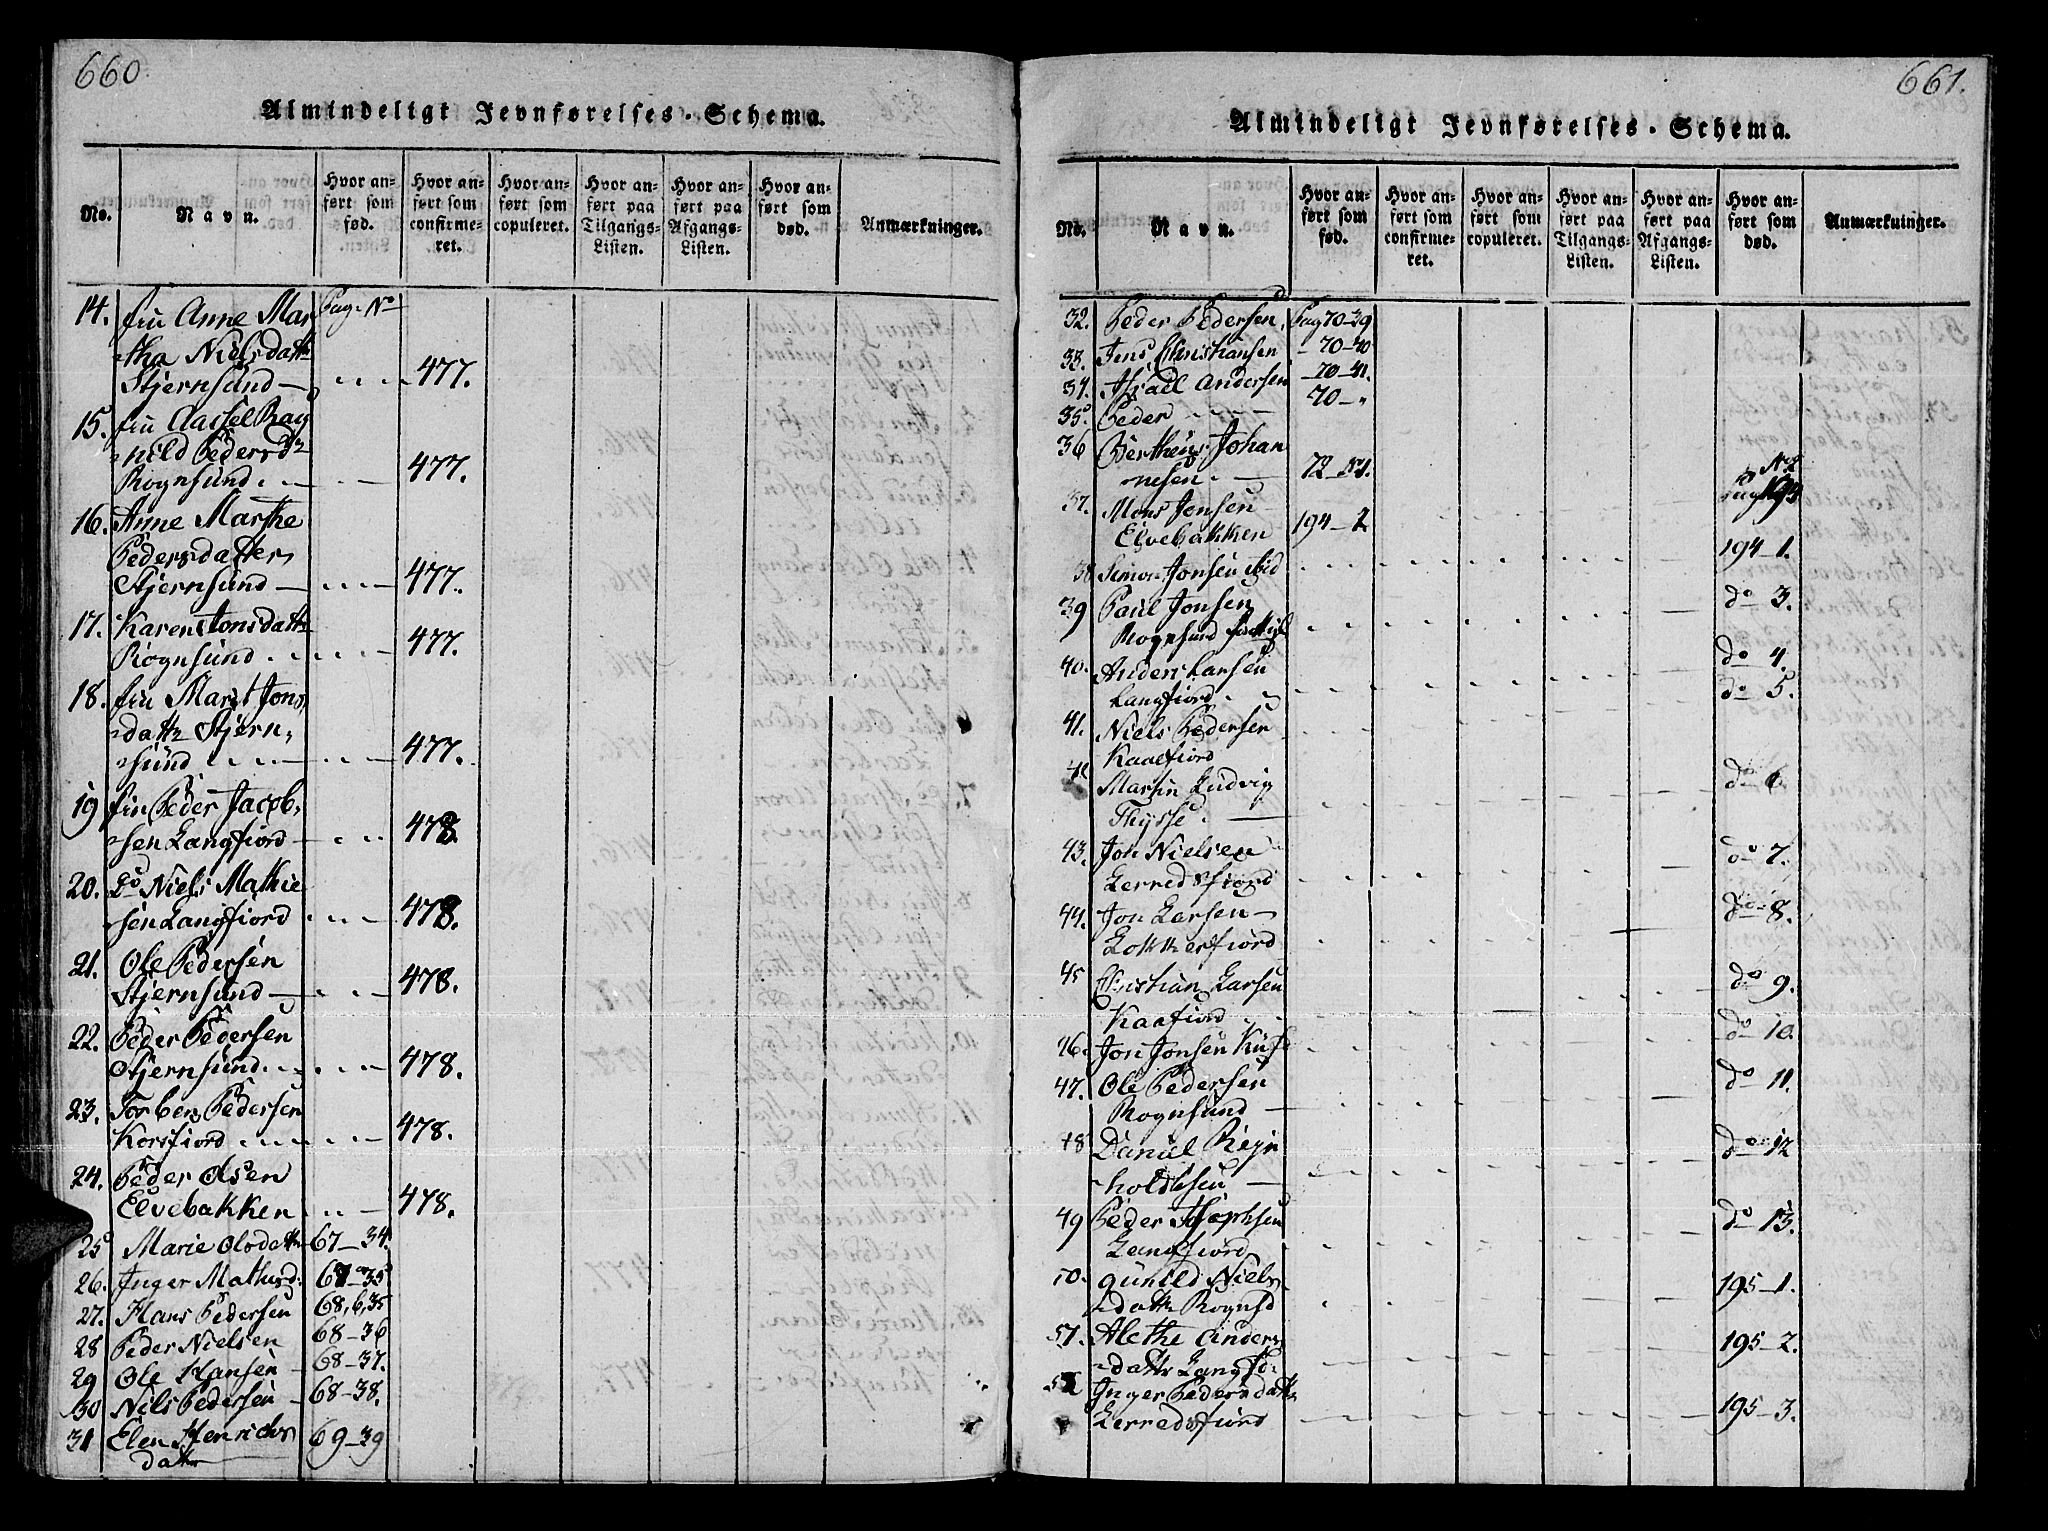 660.
Almindeligt Jevnførelses-Schema.
No.
Navn.
Hvor anført som fød.
Hvor anført som confirmeret.
Hvor anført som copuleret.
Hvor anført paa Tilgangs-Listen.
Hvor anført paa Afgangs-Listen.
Hvor anført som død.
Anmærkninger.
14. fin Anne Mar Pag. No
tha Nielsdattr
Stjernsund 477.
15. fin Aassel Rag
nild Pedersd
Rognsund 477.
16. Anne Marthe
Pedersdatter
Stjernsund 477.
17. Karen Jonsdattr
Rognsund 477.
18. fin Marit Jons
dattr Stjern
sund 477.
19 fin Peder Jacob
sen Langfiord 478.
20. Do Niels Mathie
sen Langfiord 478.
21. Ole Pedersen
Stjernsund 478.
22. Peder Pedersen
Stjernsund 478.
23. Torben Pedersen
Korsfiord 478.
24. Peder Olsen
Elvebakken 478.
25 Marie Olsdattr 67-34.
26. Inger Mathisd. 67-35
27. Hans Pedersen 68, 6, 35
28 Peder Nielsen 68-36
29 Ole Hansen 68-37.
30 Niels Pedersen 68-38.
31 Elen Henrichs 69-39
dattr
661.
Almindeligt Jevnførelses-Schema.
No.
Navn.
Hvor anført som fød.
Hvor anført som confirmeret.
Hvor anført som copuleret.
Hvor anført paa Tilgangs-Listen.
Hvor anført paa Afgangs-Listen.
Hvor anført som død.
Anmærkninger.
32. Peder Pedersen Pag 70-39
33. Jens Christiansen 70-40
34. Israel Andersen 70-41.
35. Peder 70-"
36 Bertheus Johan
nesen 72 No 1.
37. Mons Jonsen
Elvebakken 194-2
38 Simon Jonsen ibid 194-1.
39 Paul Jonsen do 3.
Rognsund
40. Anders Larsen do 4.
Langfiord do 5.
41. Niels Pedersen
Kaafiord
42 Martin Ludvig do 6.
Thysse
43. Jon Nielsen do 7.
Lerredsfiord
44. Jon Larsen do 8.
Lokkerfiord
45 Christian Larsen do 9.
Kaafiord do 10.
46. Jon Jonsen
47. Ole Pedersen do 11.
Rognsund
48 Daniel Rejn do 12
holdtsen
49 Peder Josephsen do 13.
Langfiord
50. Gunild Niels 195-1.
dattr Rognsd
51. Alethe Anders 195-2.
dattr Langfd:
52 Inger Pedersdattr
Lerredsfiord 195-3.